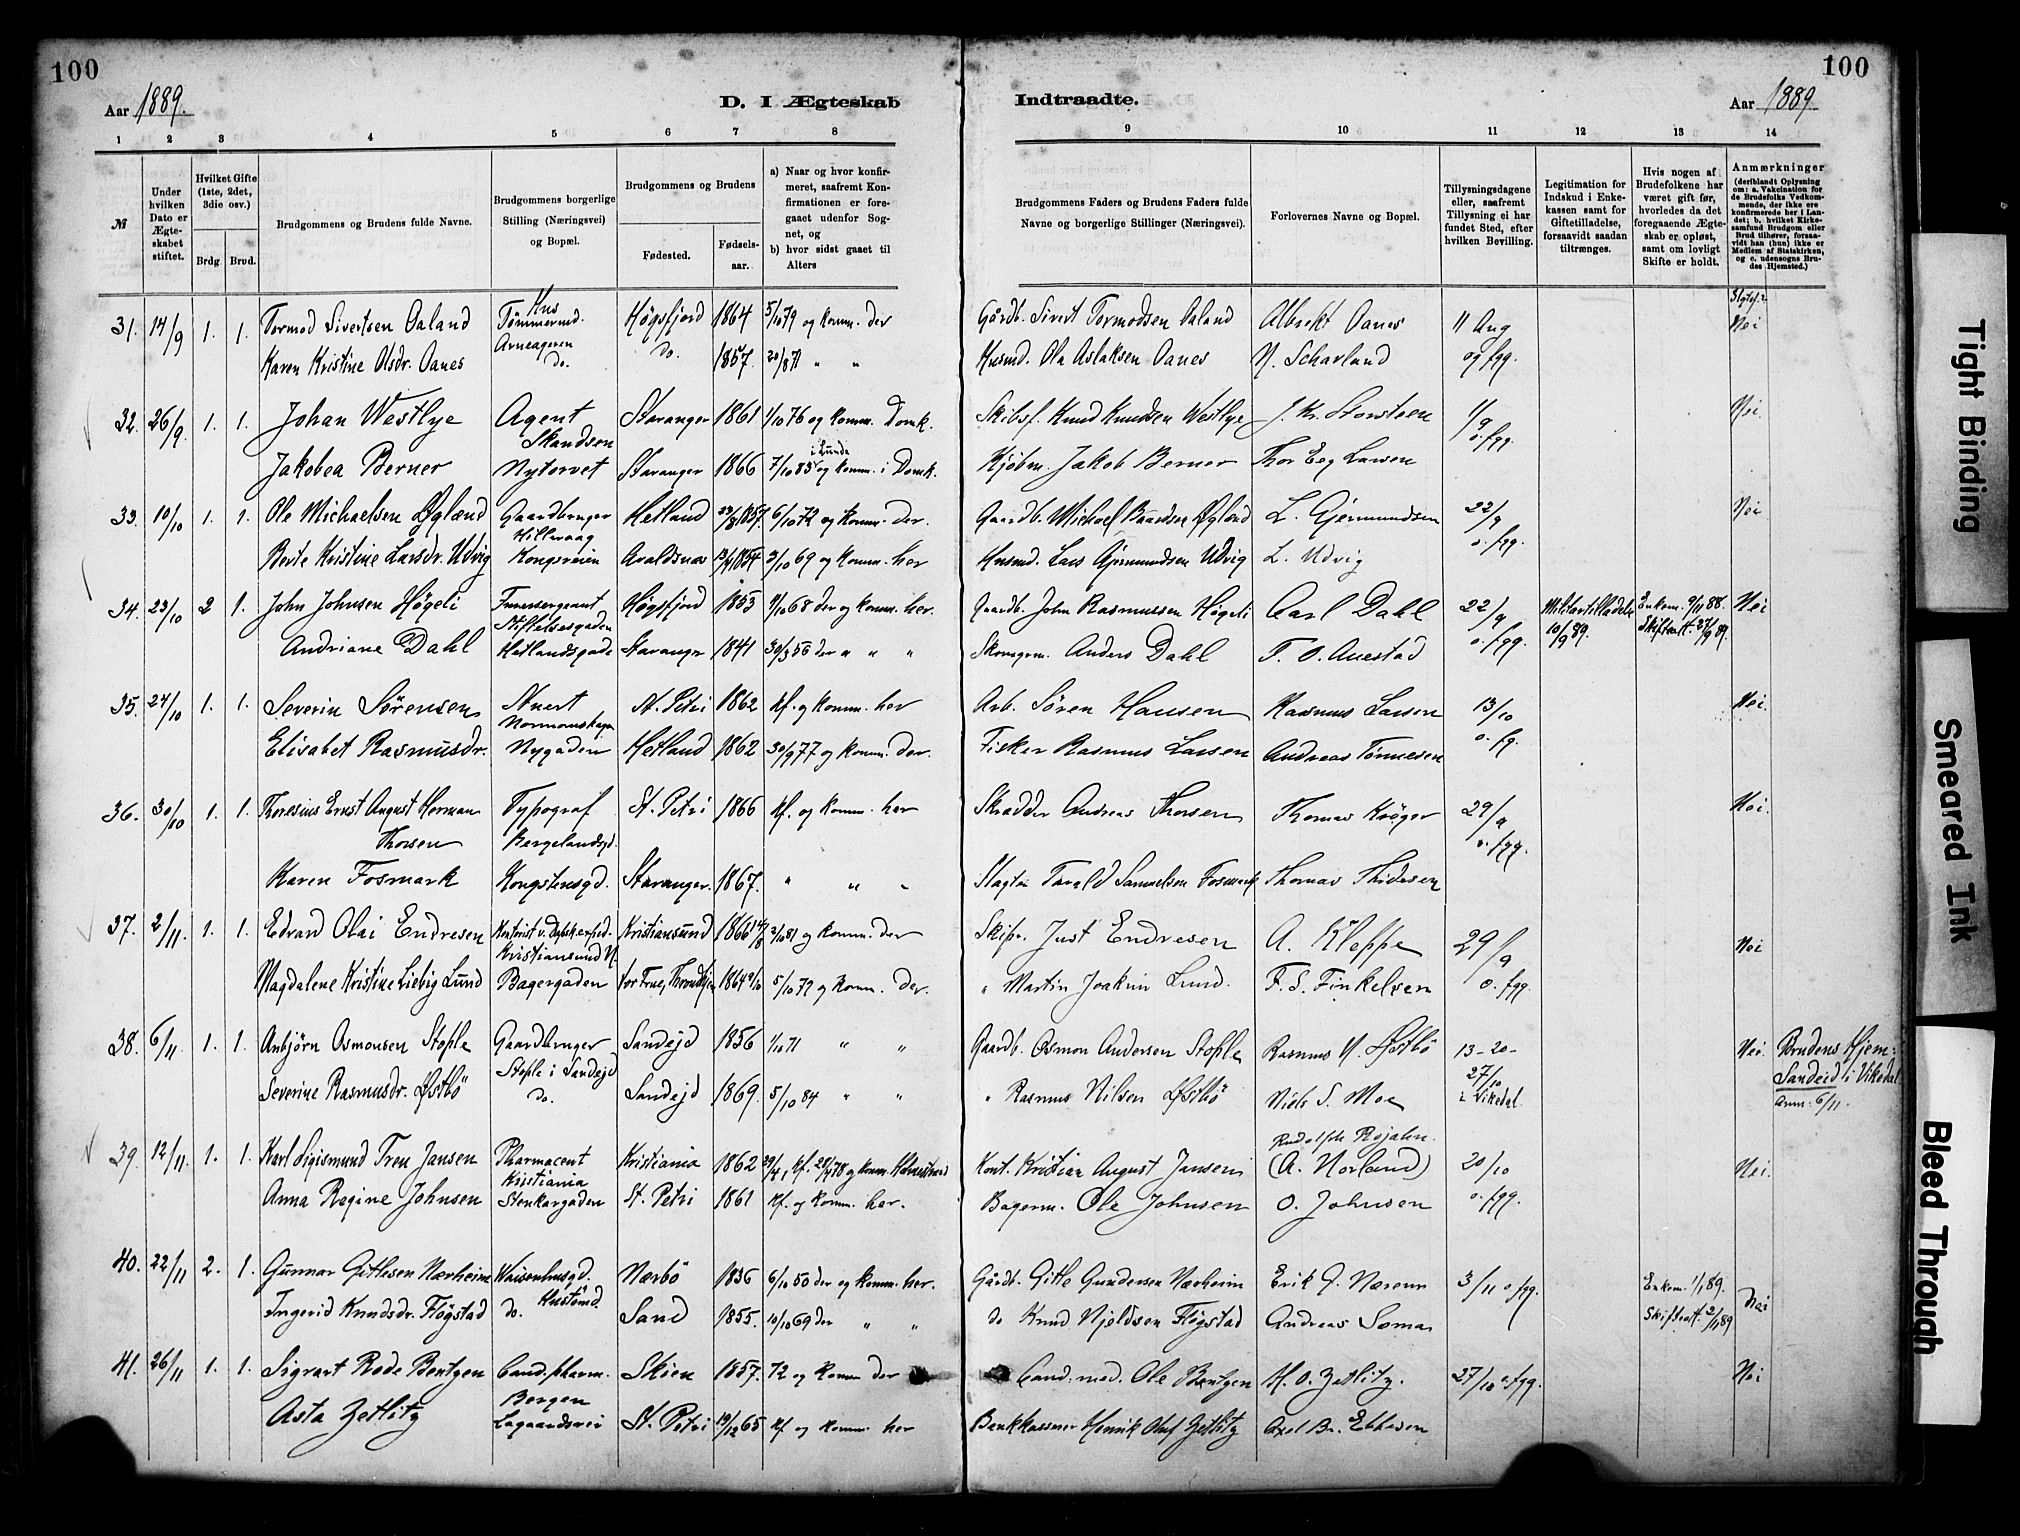 100
100
Aar 1889.
D. I Ægteskab
Indtraadte.
Aar 1889.
1 2 3 4 5 6 7 8
9 10 11 12 13 14
№
Under hvilken Dato er Ægteskabet stiftet.
Hvilket Gifte (1ste, 2det, 3die osv.)
Brdg. Brud.
Brudgommens og Brudens fulde Navne.
Brudgommens borgerlige Stilling (Næringsvei) og Bopæl.
Brudgommens og Brudens
Fødested.
Fødselsaar.
a) Naar og hvor konfirmeret, saafremt Konfirmationen er foregaaet udenfor Sognet, og
b) hvor sidst gaaet til Alters
Brudgommens Faders og Brudens Faders fulde Navne og borgerlige Stillinger (Næringsvei).
Forlovernes Navne og Bopæl.
Tillysningsdagene eller, saafremt Tillysning ei har fundet Sted, efter hvilken Bevilling.
Legitimation for Indskud i Enkekassen samt for Giftetilladelse, forsaavidt saadan tiltrænges.
Hvis nogen af Brudefolkene har været gift før, hvorledes da det foregaaende Ægteskab er opløst, samt om lovligt Skifte er holdt.
Anmærkninger
(deriblandt Oplysning om: a. Vakcination for de Brudefolks Vedkommende, der ikke ere konfirmerede her i Landet; b. hvilket Kirkesamfund Brudgom eller Brud tilhører, forsaavidt han (hun) ikke er Medlem af Statskirken, og c. udensogns Brudes Hjemsted.)
31. 14/9 1. 1. Tormod Sivertsen Oaland Tømmermd. Høgsfjord 1864 5/10 79 og komm. der Gårdb. Sivert Tormodsen Oaland Albrekt Oanes 11 Aug Nei
Arneageren
Karen Kristine Olsdr. Oanes do. do. 1857. 20/8 71 " " Husmd. Ola Aslaksen Oanes N. Scharland og fgg.
32. 26/9 1. 1. Johan Westlye Agent Stavanger 1861 1/10 76 og komm. Domk. Skibsf. Knud Knudsen Westlye J. Kr. Storsteen 1/9 Nei.
Skandsen i Lunde o. fgg.
Jakobea Berner Nytorvet Stavanger 1866 7/10 83 og komm. i Domk. Kjøbm. Jakob Berner Thor Eeg Larsen
33. 10/10 1. 1. Ole Michaelsen Øgland Gaardbruger Hetland 1857. 6/10 72 og komm. der. Gaardb. Michael Baardsen Øgland L. Gjermundsen 22/9 Nei
Hillevaag o. fgg.
Berte Kristine Larsdr. Udvig Kongsveien Avaldsnæs 1854 3/10 69 og komm. her Husmd. Lars Gjermundsen Udvig L. Udvig
34. 23/10 2 1. John Johnsen Høgeli Høgsfjord 1853 4/10 68 der og komm. her. Gaardb. John Rasmussen Høgeli Carl Dahl 22/9 Militærtilladelse Enkem. 9/11 88. Nei
Stiftelsesgaden 10/9 89. Skifteatt. 27/9 89.
Andriane Dahl Hetlandsgade Stavanger 1841 30/3 56 der " " " Skomagerm. Anders Dahl T. O. Auestad o. fgg.
35. 24/10 1. 1. Severin Sørensen Stuert St. Petri 1862 Kf. og komm. her Arb. Søren Hansen Rasmus Larsen 13/10 Nei.
Elisabet Rasmusdr. Nygaden Hetland 1862 30/9 77 og komm. der. Fisker Rasmus Larsen Andreas Tønnesen o. fg.
36. 30/10 1. 1. Thoresius Ernst August Herman Typograf St. Petri 1866 Kf. og komm. her Skrædder Andreas Thorsen Thomas Krøger 29/9 Nei.
Thorsen Bergelandsgd. o. fgg.
Karen Fosmark Kongstensgd. Stavanger. 1867. " " " Slagter Tarald Samuelsen Fosmark Thomas Thidesen
37. 2/11. 1. 1. Edvard Olai Endresen Kristiansund 1866 14/8 2/10 81 og komm. der Skipr. Just Endresen A. Kleppe 29/9 Nei
Kristiansund N.
Magdalene Kristine Liebig Lund Bagergaden Vor Frue, Throndhjem 1864 5/10 79 og komm. der. " Martin Joakim Lund. F. S. Finkelsen o. fgg.
38. 6/11. 1. 1. Anbjörn Osmonsen Stople Gaardbruger Sandejd 1856 1/10 71 " " Gaardb. Osmon Andersen Stople Rasmus N. Østbö 13–20– Nei. Brudens Hjem:
Stople i Sandejd 27/10 Sandeid i Vikedal
Severine Rasmusdr. Østbö do. Sandejd 1869. 5/10 84 " " " Rasmus Nilsen Østbö Niels S. Moe i Vikedal Anm: 6/11.
Rudolph Rojahn.
39. 12/11. 1. 1. Karl Sigismund Treu Jansen Pharmaceut Kristiania 1862 Kont. Kristian August Jansen (A. Norland) 20/10 Nei.
Kristiania
Anna Regine Johnsen Stenkargaden St. Petri 1861 Kf. og komm. her. Bagerm. Ole Johnsen O. Johnsen o. fgg.
40. 22/11 2. 1. Gunnar Gitlesen Nærheim Waisenhusgd. Nærbö 1836 6/10 50 der og komm. her. Gårdb. Gitle Gundersen Nærheim Erik G. Næremn 3/11 o fgg. Enkem. 1/1 89. Nei
Ingerid Knudsdr. Fløgstad do. Sand 1855. 10/10 69 der " " do Knud Njeldsen Fløgstad Andreas Soma Skifteatt. 2/1 89
41. 26/11 1. 1. Sigvart Rode Bentzen Cand. pharm. Skien 1857. 72 og komm der Cand. med. Ole Bentzen H. O. Zetlitz. 27/10 o. fgg. Nei
Bergen
Asta Zetlitz Lagaardsvei St. Petri 19/12 65 Kf og komm. her Bankkasserer Henrik Oluf Zetlitz Axel Br. Ebbesen
Tight Binding
Smeared Ink
Bleed Through